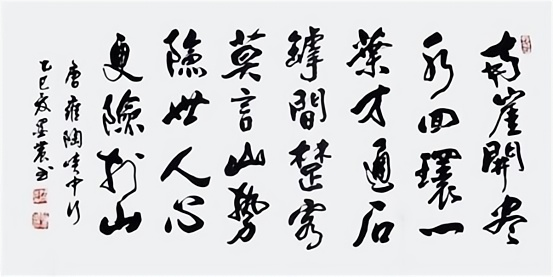 兩崖開盡
水回環一
葉才通石
罅間楚客
莫言山勢
險世人心
更險於山
唐雍陶峽中行
乙巳夏墨農书